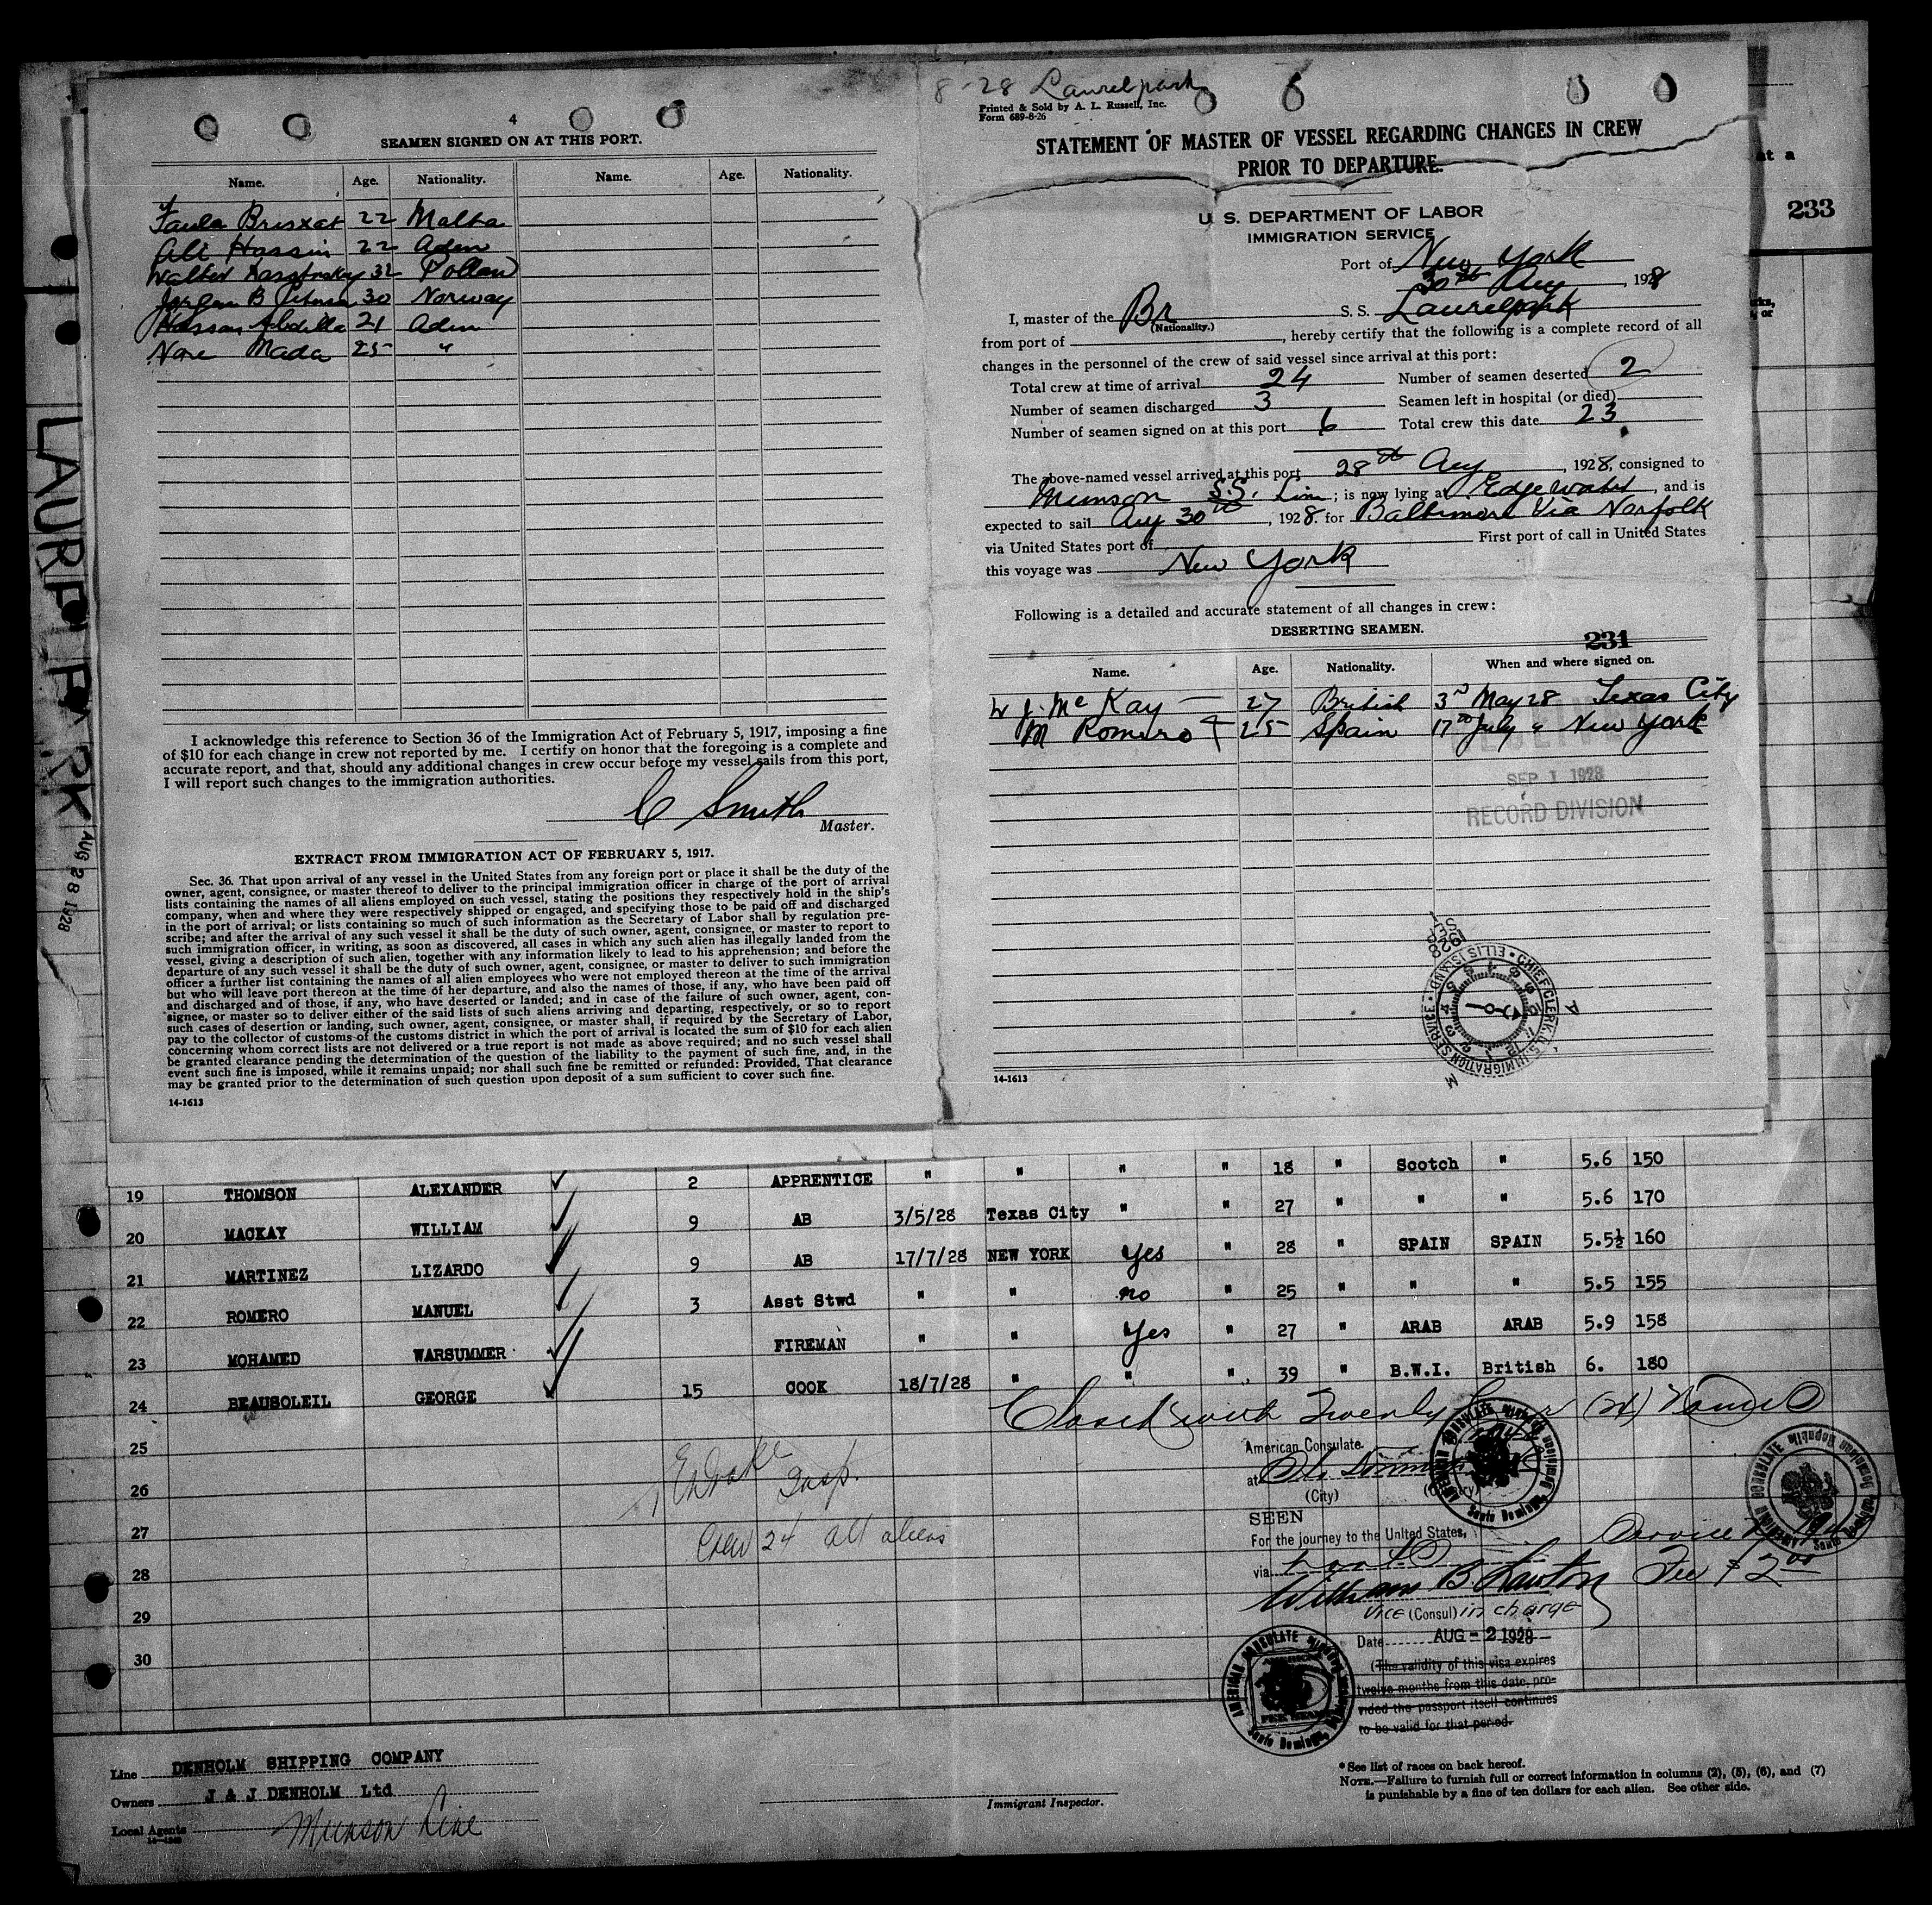 8-28 Laurelpark
4
SEAMEN SIGNED ON AT THIS PORT.
Name. Age. Nationality. Name. Age. Nationality.
Brisxat 22 Malta
Ali Hassin 22 Aden
32 Polland
Jorgen B 30 Norway
Hassan Abdilla 21 Aden
Nore Mada 25 "
I acknowledge this reference to Section 36 of the Immigration Act of February 5, 1917, imposing a fine
of $10 for each change in crew not reported by me. I certify on honor that the foregoing is a complete and
accurate report, and that, should any additional changes in crew occur before my vessel sails from this port,
I will report such changes to the immigration authorities.
C Smith
Master.
EXTRACT FROM IMMIGRATION ACT OF FEBRUARY 5, 1917.
Sec. 36. That upon arrival of any vessel in the United States from any foreign port or place it shall be the duty of the
owner, agent, consignee, or master thereof to deliver to the principal immigration officer in charge of the port of arrival
lists containing the names of all aliens employed on such vessel, stating the positions they respectively hold in the ship's
company, when and where they were respectively shipped or engaged, and specifying those to be paid off and discharged
in the port of arrival; or lists containing so much of such information as the Secretary of Labor shall by regulation pre-
scribe; and after the arrival of any such vessel it shall be the duty of such owner, agent, consignee, or master to report to
such immigration officer, in writing, as soon as discovered, all cases in which any such alien has illegally landed from the
vessel, giving a description of such alien, together with any information likely to lead to his apprehension; and before the
departure of any such vessel it shall be the duty of such owner, agent, consignee, or master to deliver to such immigration
officer a further list containing the names of all alien employees who were not employed thereon at the time of the arrival
but who will leave port thereon at the time of her departure, and also the names of those, if any, who have been paid off
and discharged and of those, if any, who have deserted or landed; and in case of the failure of such owner, agent, con-
signee, or master so to deliver either of the said lists of such aliens arriving and departing, respectively, or so to report
such cases of desertion or landing, such owner, agent, consignee, or master shall, if required by the Secretary of Labor,
pay to the collector of customs of the customs district in which the port of arrival is located the sum of $10 for each alien
concerning whom correct lists are not delivered or a true report is not made as above required; and no such vessel shall
be granted clearance pending the determination of the question of the liability to the payment of such fine, and, in the
event such fine is imposed, while it remains unpaid; nor shall such fine be remitted or refunded: Provided, That clearance
may be granted prior to the determination of such question upon deposit of a sum sufficient to cover such fine.
14-1613
LAUREL PARK AUG 28 1928
Printed & Sold by A. L. Russell, Inc.
Form 689-8-26
STATEMENT OF MASTER OF VESSEL REGARDING CHANGES IN CREW
PRIOR TO DEPARTURE.
U. S. DEPARTMENT OF LABOR
IMMIGRATION SERVICE
Port of New York
30th Aug, 1928
I, master of the Br S. S. Laurelpark
(Nationality.)
from port of , hereby certify that the following is a complete record of all
changes in the personnel of the crew of said vessel since arrival at this port:
Total crew at time of arrival 24 Number of seamen deserted 2
Number of seamen discharged 3 Seamen left in hospital (or died)
Number of seamen signed on at this port 6 Total crew this date 23
The above-named vessel arrived at this port 28th Aug, 1928, consigned to
Munson S.S. Line; is now lying at Edgewater, and is
expected to sail Aug 30th, 1928. for Baltimore Via Norfolk
via United States port of First port of call in United States
this voyage was New York
Following is a detailed and accurate statement of all changes in crew:
DESERTING SEAMEN.
231
Name. Age. Nationality. When and where signed on.
W J. McKay 27 British 3rd May 28 Texas City
M Romero 25 Spain 17th July " New York
SEP 1 1928
RECORD DIVISION
SEP 1928
CHIEF CLERK, U.S. IMMIGRATION SERVICE • ELLIS ISLAND
A
M
14-1613
at a
233
19 THOMSON ALEXANDER 2 APPRENTICE " " " " 18 " Scotch " 5.6 150
20 MACKAY WILLIAM 9 AB 3/5/28 Texas City " " 27 " " " 5.6 170
21 MARTINEZ LIZARDO 9 AB 17/7/28 NEW YORK Yes " 28 " SPAIN SPAIN 5.5½ 160
22 ROMERO MANUEL 3 Asst Stwd " " no " 25 " " " 5.5 155
23 MOHAMED WARSUMMER FIREMAN " " Yes " 27 " ARAB ARAB 5.9 158
24 BEAUSOLEIL GEORGE 15 COOK 18/7/28 " " " 39 " B.W.I. British 6. 180
25
26
27
28
29
30
Closed with Twenty (24) Names
Insp.
Crew 24 all aliens
American Consulate
at
(City) (Country)
SEEN
For the journey to the United States,
via
William B. Lawton
Vice (Consul) in charge
Fee $2.00
Date AUG - 2 1928
(The validity of this visa expires
twelve months from this date, pro-
vided the passport itself continues
to be valid for that period.
AMERICAN CONSULATE Santo Domingo, Dominican Republic
AMERICAN CONSULATE Santo Domingo, Dominican Republic
AMERICAN CONSULATE Santo Domingo, Dominican Republic
Line DENHOLM SHIPPING COMPANY
Owners J & J DENHOLM Ltd
Local Agents Munson Line
Immigrant Inspector.
* See list of races on back hereof.
NOTE.—Failure to furnish full or correct information in columns (2), (5), (6), and (7)
is punishable by a fine of ten dollars for each alien. See other side.